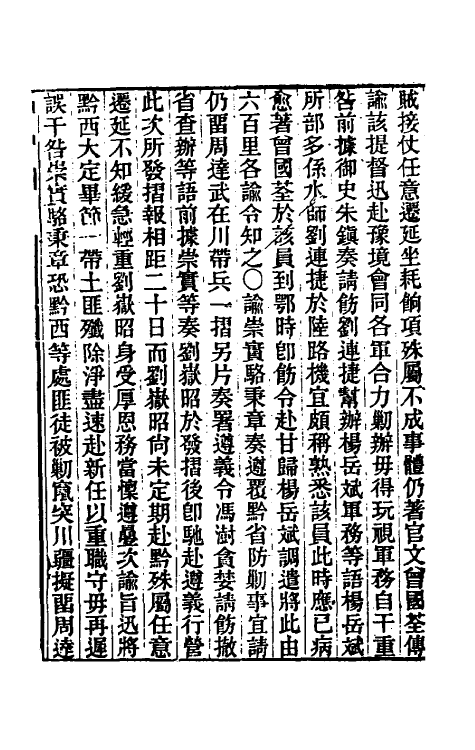 賊接仗任意遷延坐耗餉項殊屬不成事體仍著官文曾國荃傳
諭該提督迅赴豫境會同各軍合力勦辦毋得玩視軍務自干重
咎前據御史朱鎮奏請飭劉連捷幫辦楊岳斌軍務等語楊岳斌
所部多係水師劉連捷於陸路機宜頗稱熟悉該員此時應已病
愈著曾國荃於該員到鄂時卽飭令赴甘歸楊岳斌調遣將此由
六百里各諭令知之○諭崇實駱秉章奏遵覆黔省防勦事宜請
仍留周達武在川帶兵一摺另片奏署遵義令馮澍貪婪請飭撤
省查辦等語前據崇實等奏劉嶽昭於發摺後卽馳赴遵義行營
此次所發摺報相距二十日而劉嶽昭尚未定期赴黔殊屬任意
遷延不知緩急輕重劉嶽昭身受厚恩務當懍遵屢次諭旨迅將
黔西大定畢節一帶土匪殲除淨盡速赴新任以重職守毋再遲
誤干咎崇實駱秉章恐黔西等處匪徒被勦竄突川疆擬留周達